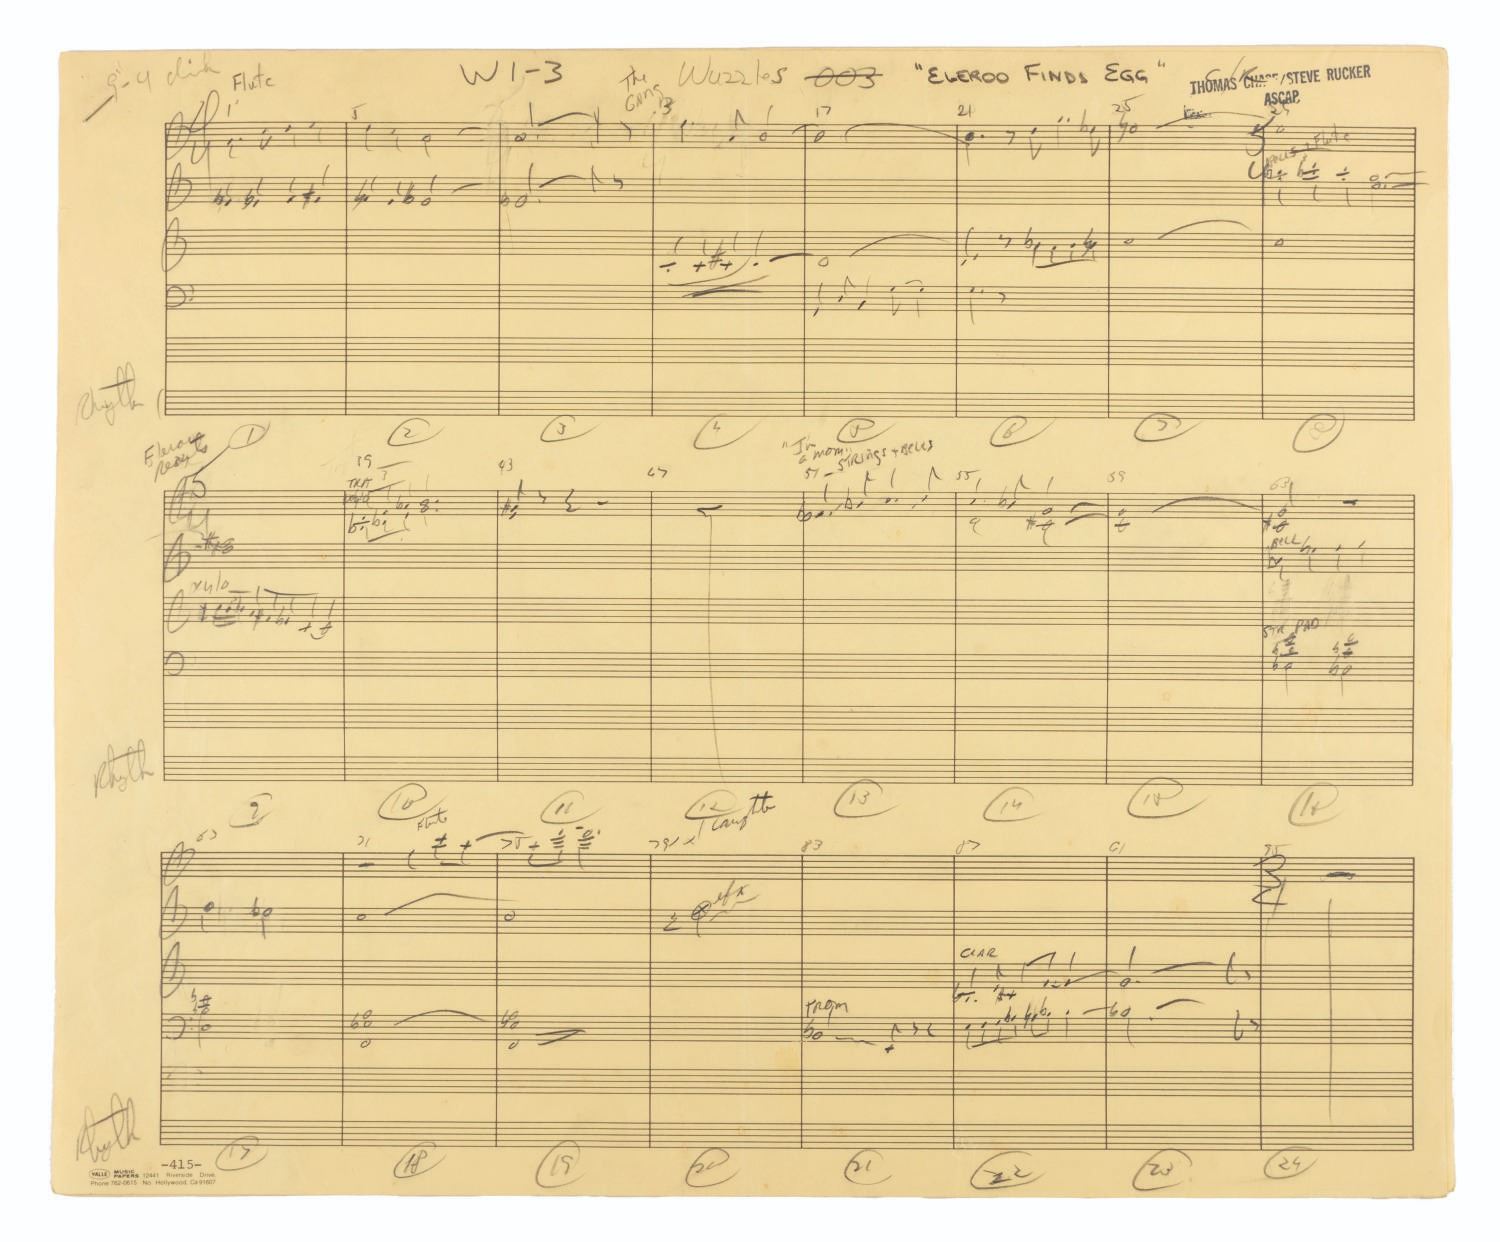 9-4 click Flute W1-3 The Gang Wuzzles 003 "ELEROO FINDS EGG" THOMAS CHASE/STEVE RUCKER
ASCAP
1 5 13 17 21 25
Flute
Rhyth
1 2 3 4 5 6 7 8
Eleroo reacts
39 43 47 "I'm a mom" 51 - STRINGS + BELLS 55 59 63
xylo
BELL
STR PAD
Rhyth
9 10 11 12 13 14 15 16
Flute Laughter
71 75 79 83 87 91 95
efx
CLAR
TROM
Rhyth
17 18 19 20 21 22 23 24
-415-
VALLE MUSIC PAPERS 12441 Riverside Drive
Phone 762-0615 No. Hollywood, Ca 91607